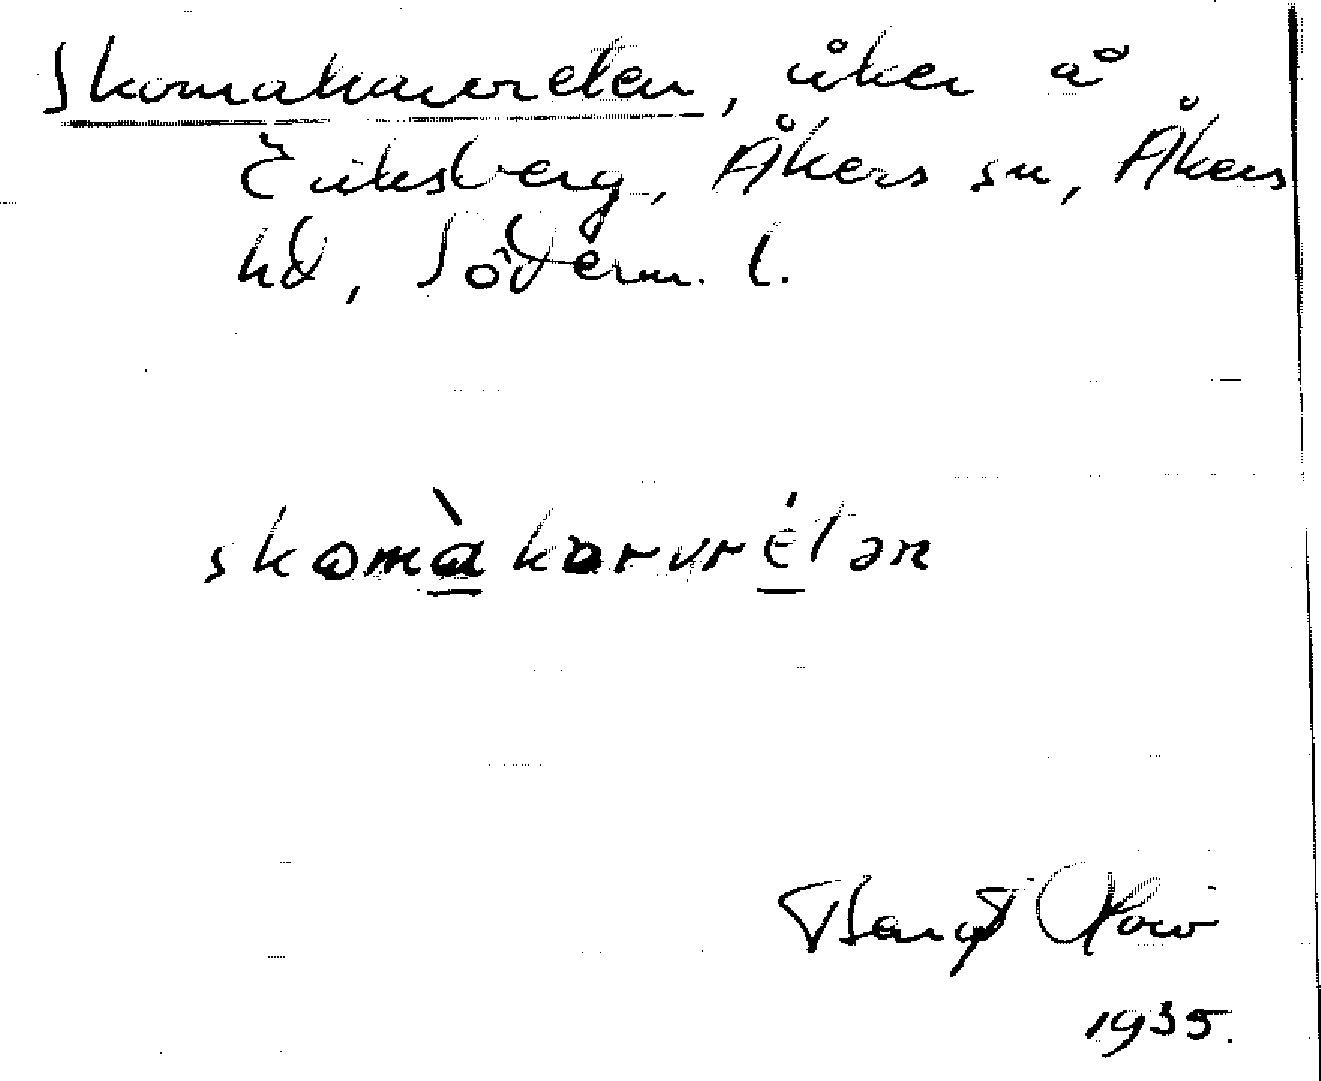 Skomakarvreten, åker å
Eriksberg, Åkers sn, Åkers
hd, Söderm. l.
skomàkarvrétən
Bengt
1935.